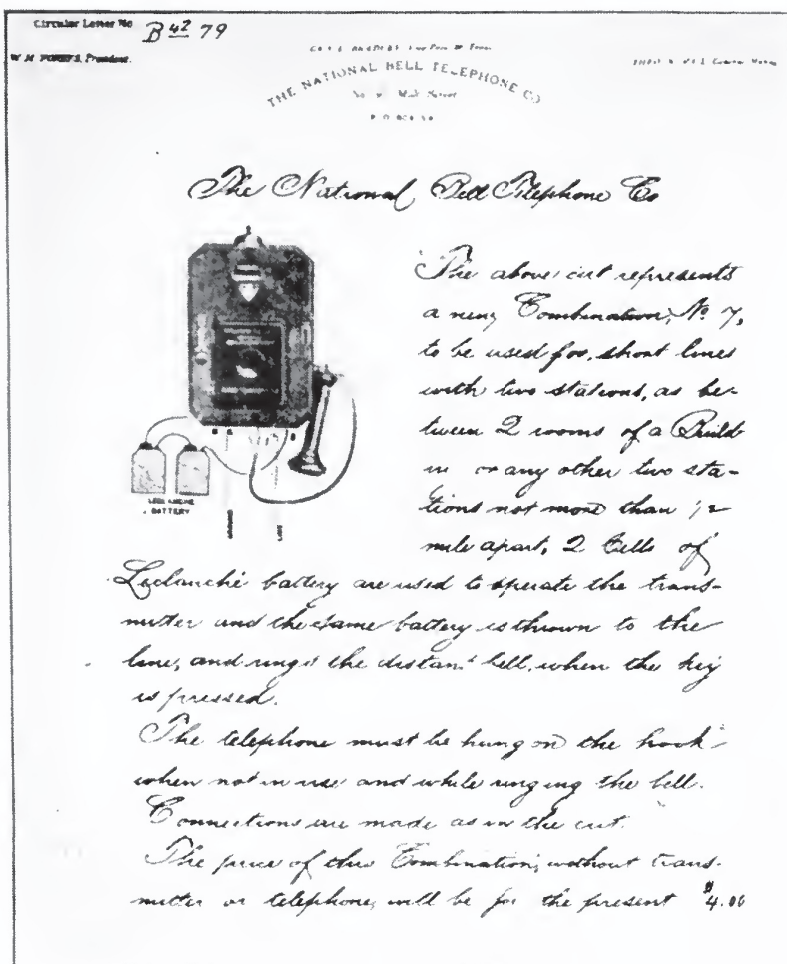 Circular Letter No B 42 79
W. H. FORBES, President.
THE NATIONAL BELL TELEPHONE CO
The National Bell Telephone Co
The above cut represents
a new Combination, No. 7,
to be used for short lines
with two stations, as be-
tween 2 rooms of a Build
in or any other two sta-
tions not more than 1/2
mile apart, 2 Cells of
LECLANCHE
BATTERY
Leclanché battery are used to operate the trans-
mitter and the same battery is thrown to the
line, and rings the distant bell, when the key
is pressed.
The telephone must be hung on the hook
when not in use and while ringing the bell.
Connections are made as in the cut.
The price of this Combination, without trans-
mitter or telephone, will be for the present $4.00